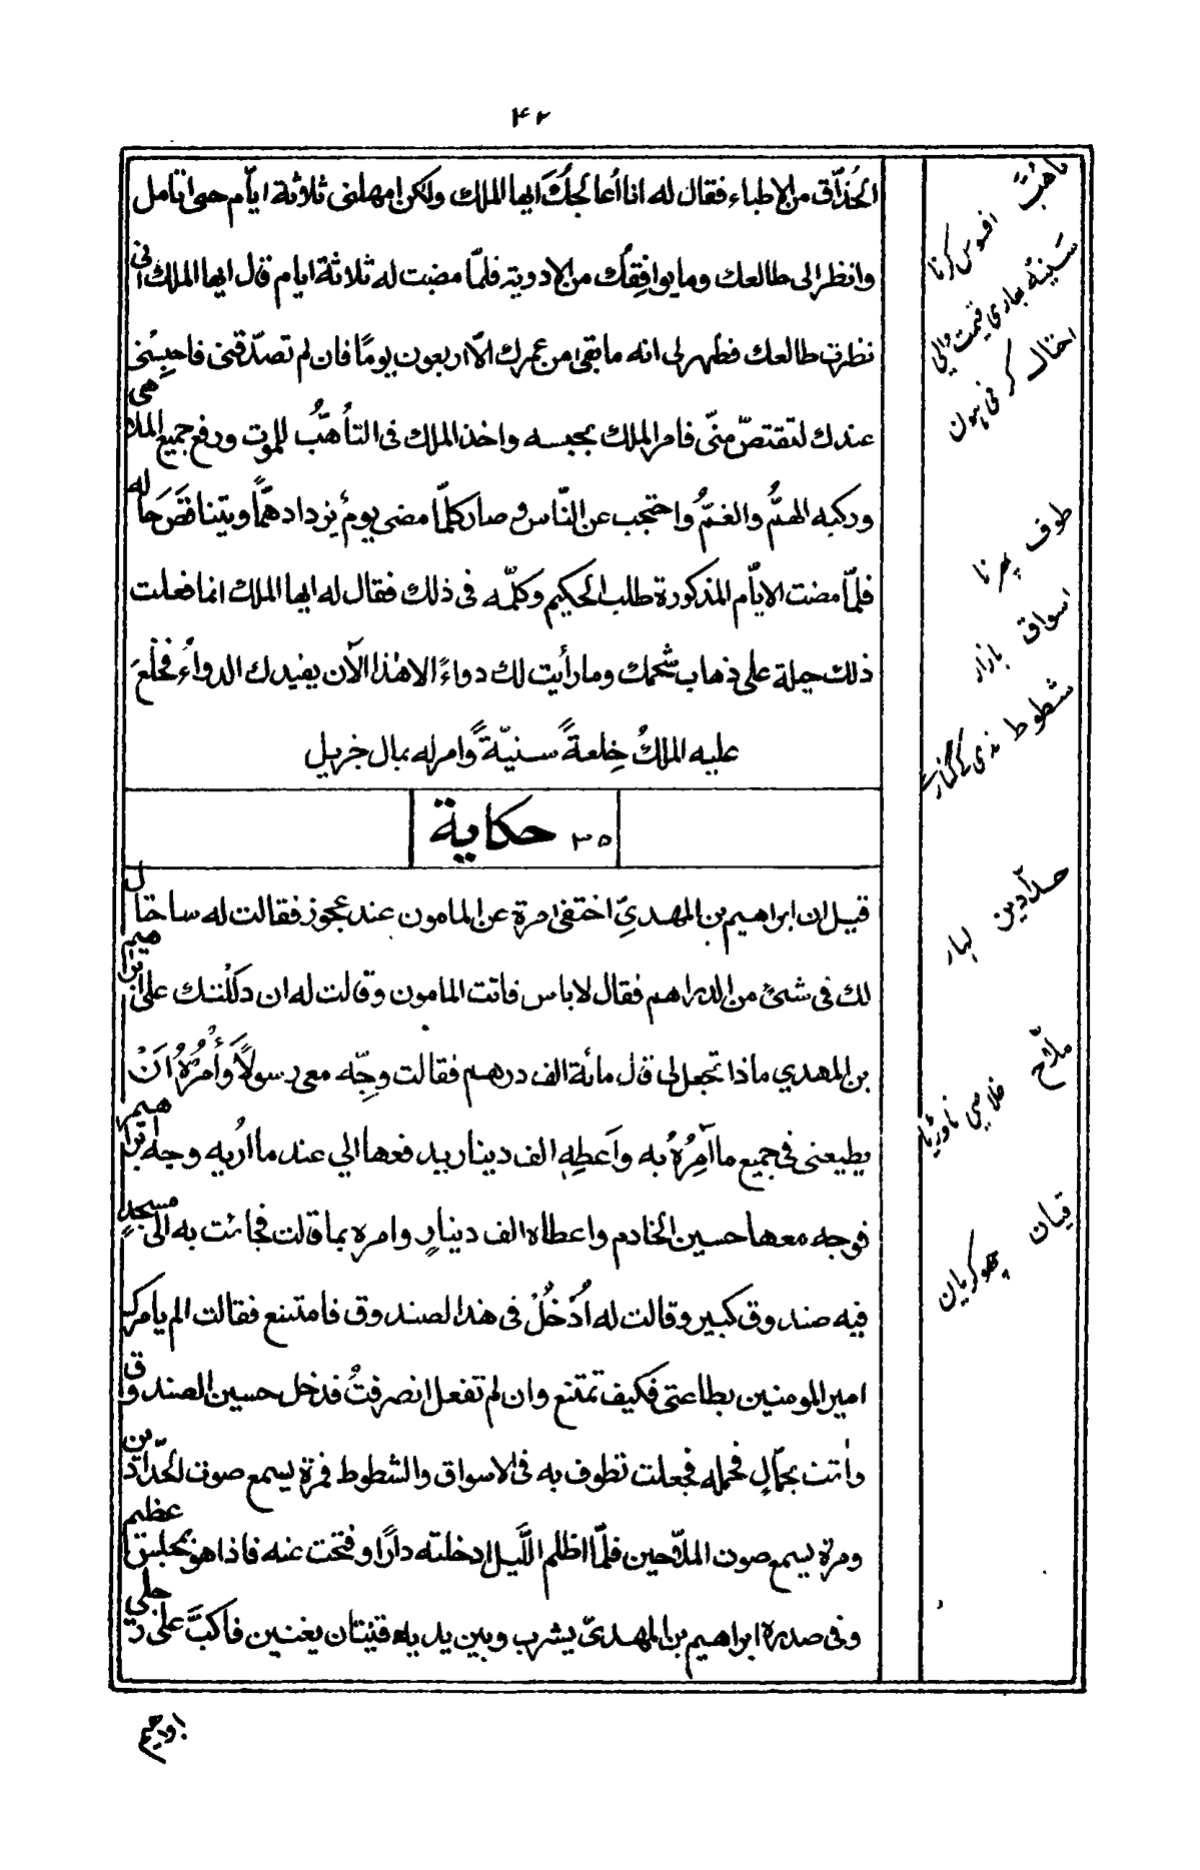 ۴۲
الحُذّاق من الاطباء فقال له انا اُعالجكَ ايها الملك ولكن امهلنى ثلاثة ايّام حتى اتامل
وانظر الى طالعك وما يوافِقك من الادوية فلمّا مضت له ثلاثة ايام قال ايها الملك انى
نظرت طالعك فظهر لى انه ما بقى من عمرك الّا اربعون يومًا فان لم تصدّقنى فاحبِسْنى
عندك لتقتصّ منّى فامر الملك بحبسه واخذ الملك فى التأهّبُ للموت ورفع جميع الملاهى
وركبه الهمُّ والغمُّ واحتجب عن النّاس و صار كلّما مضى يومٌ يزداد همًّا ويتناقَصَ حاله
فلمّا مضت الايّام المذكورة طلب الحكيم وكلّمه فى ذلك فقال له ايها الملك انما فعلت
ذلك حيلة على ذهاب شحمك وما رأيت لك دواءً الا هذا الآن يفيدك الدواءُ فخلعَ
عليه الملكُ خِلعةً سنيّةً وامر له بمال جزيل
۳۵ حكاية
قيل ان ابراهيم بن المهدىّ اختفى مرة عن المامون عند عجوز فقالت له ساحتال
لك فى شئ من الدراهم فقال لا باس فاتت المامون وقالت له ان دَلَلْتك على ابراهيم
بن المهدي ماذا تجعل لى قال مائة الف درهم فقالت وجّه معى رسولًا وَأْمُرْهُ اَنْ
يطيعنى فى جميع ما آمِرُهُ به واَعطِهِ الف دينار يدفعها الي عند ما اُريه وجه ابراهيم
فوجه معها حسين الخادم واعطاه الف دينارٍ وامره بما قالت فجائت به الى مسجدٍ
فيه صندوق كبير وقالت له اُدْخُلْ فى هذا الصندوق فامتنع فقالت الم يامرك
امير المومنين بطاعتى فكيف تمتنع وان لم تفعل انصرفتُ فدخل حسين الصندوق
واتت بحمّالٍ فحمله فجعلت تطوف به فى الاسواق والشطوط فمرة يسمع صوت الحدّادين
ومرة يسمع صوت الملّاحين فلمّا اظلم اللّيل ادخلته دارًا وفتحت عنه فاذا هو بمجلس عظيم
وفى صدره ابراهيم بن المهدىّ يشرب وبين يديه قينتان يغنين فاكبَّ على رجلي
تاهّبت افسوس كرنا
سنيّه بهارى قيمت والى
احتال
طوف پهرنا
اسواق بازار
شطوط ندى كے كنارے
حدّادين لہار
ملّاح
قيان چهوكريان